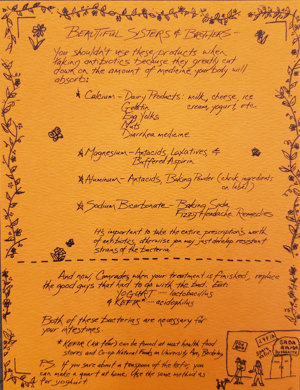 BEAUTIFUL SISTERS & BROTHERS -
You shouldn't use these products when
taking antibiotics because they greatly cut
down on the amount of medicine your body will
absorb:
Calcium - Dairy Products: milk, cheese, ice
cream, yogurt, etc.
Gelatin
Egg Yolks
Nuts
Diarrhea medicine
Magnesium - Antacids, Laxatives &
Buffered Aspirin
Aluminum - Antacids, Baking Powder (check ingredients
on label)
Sodium Bicarbonate - Baking Soda,
Fizzy Headache Remedies
It's important to take the entire prescription's worth
of antibiotics, otherwise you may just develop resistant
strains of the bacteria.
And now, Comrades, when your treatment is finished, replace
the good guys that had to go with the bad. Eat:
YOGHURT - lactobacillus
& KEFIR* - acidophilus
Both of these bacterias are necessary for
your intestines.
* KEFIR can be found at most health food
stores and Co-op Natural Foods on University Ave, Berkeley
P.S. If you save about a teaspoon of the kefir, you
can make a quart at home. Use the same method as
for yoghurt